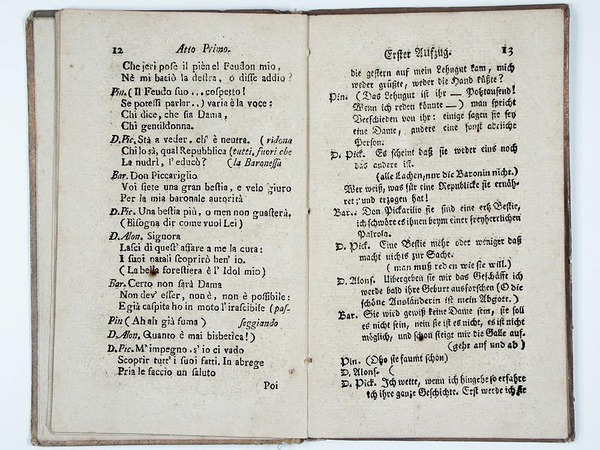 12 Atto Primo.
Che jeri pose il piè nel Feudon mio,
Nè mi baciò la destra, o disse addio?
Pin. (Il Feudo suo ... cospetto!
Se potessi parlar..) varia è la voce:
Chi dice, che sia Dama,
Chi gentildonna.
D. Pic. Stà a veder. ch' è neutra. (ridono
Chi lo sà, qual Republica (tutti, fuori che
La nudrì, l'educò? (la Baronessa
Bar. Don Piccariglio
Voi siete una gran bestia, e velo giuro
Per la mia baronale autorità
D. Pic. Una bestia più, o men non guasterà.
(Bisogna dir come vuol Lei)
D. Alon. Signora
Lasci di quest' affare a me la cura:
I suoi natali scoprirò ben' io.
(La bella forestiera è l' Idol mio)
Bar. Certo non sarà Dama
Non dev' esser, non è, non è possibile:
E già caspita ho in moto l'irascibile (pas-
Pin (Ah ah già fuma) seggiando
D. Alon. Quanto è mai bisbetica!)
D. Pic. M' impegno. s' io ci vado
Scoprir tutt' i suoi fatti, In abrege
Pria le faccio un saluto
Poi
Erster Aufzug. 13
die gestern auf mein Lehngut kam, mich
weder grüßte, weder die Hand küßte?
Pin. (Das Lehngut ist ihr — Potztausend!
Wenn ich reden könnte —) man spricht
Verschieden von ihr: einige sagen sie sey
eine Dame, andere eine sonst adeliche
Person.
D. Pick. Es scheint daß sie weder eins noch
das andere ist.
(alle Lachen, nur die Baronin nicht.)
Wer weiß, was für eine Republicke sie ernäh-
ret; und erzogen hat!
Bar. Don Pickarilio sie sind eine erz Bestie,
ich schwöre es ihnen beym einer freyherrlichen
Patrola.
D. Pick. Eine Bestie mehr oder weniger daß
macht nichts zur Sache.
(man muß reden wie sie will.)
D. Alons. Uibergeben sie mir das Geschäfft ich
werde bald ihre Geburt ausforschen (O die
schöne Ausländerin ist mein Abgott.)
Bar. Sie wird gewiß keine Dame seyn, sie soll
es nicht seyn, nein sie ist es nicht, es ist nicht
möglich, und schon steigt mir die Galle auf.
(gehr auf und ab)
Pin. (Oho sie saumt schon)
D. Alons. (
D. Pick. Ich wette, wenn ich hingehe so erfahre
ich ihre ganze Geschichte. Erst werde ich sie